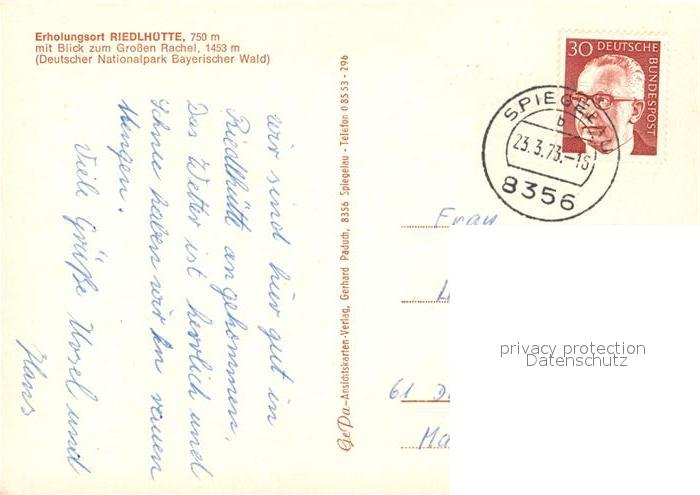 Erholungsort RIEDLHÜTTE, 750 m
mit Blick zum Großen Rachel, 1453 m
(Deutscher Nationalpark Bayerischer Wald)
wir sind hier gut in
Riedlhütt angekommen.
Das Wetter ist herrlich und
Schnee haben wir in rauen
Mengen.
Viele Grüße Ursel und
Hans
GePa-Ansichtskarten-Verlag, Gerhard Paduch, 8356 Spiegelau - Telefon 0 85 53 - 296
30 DEUTSCHE BUNDESPOST
SPIEGELAU
b
23.3.73.-16
8356
Frau
61 D
Ma
privacy protection
Datenschutz